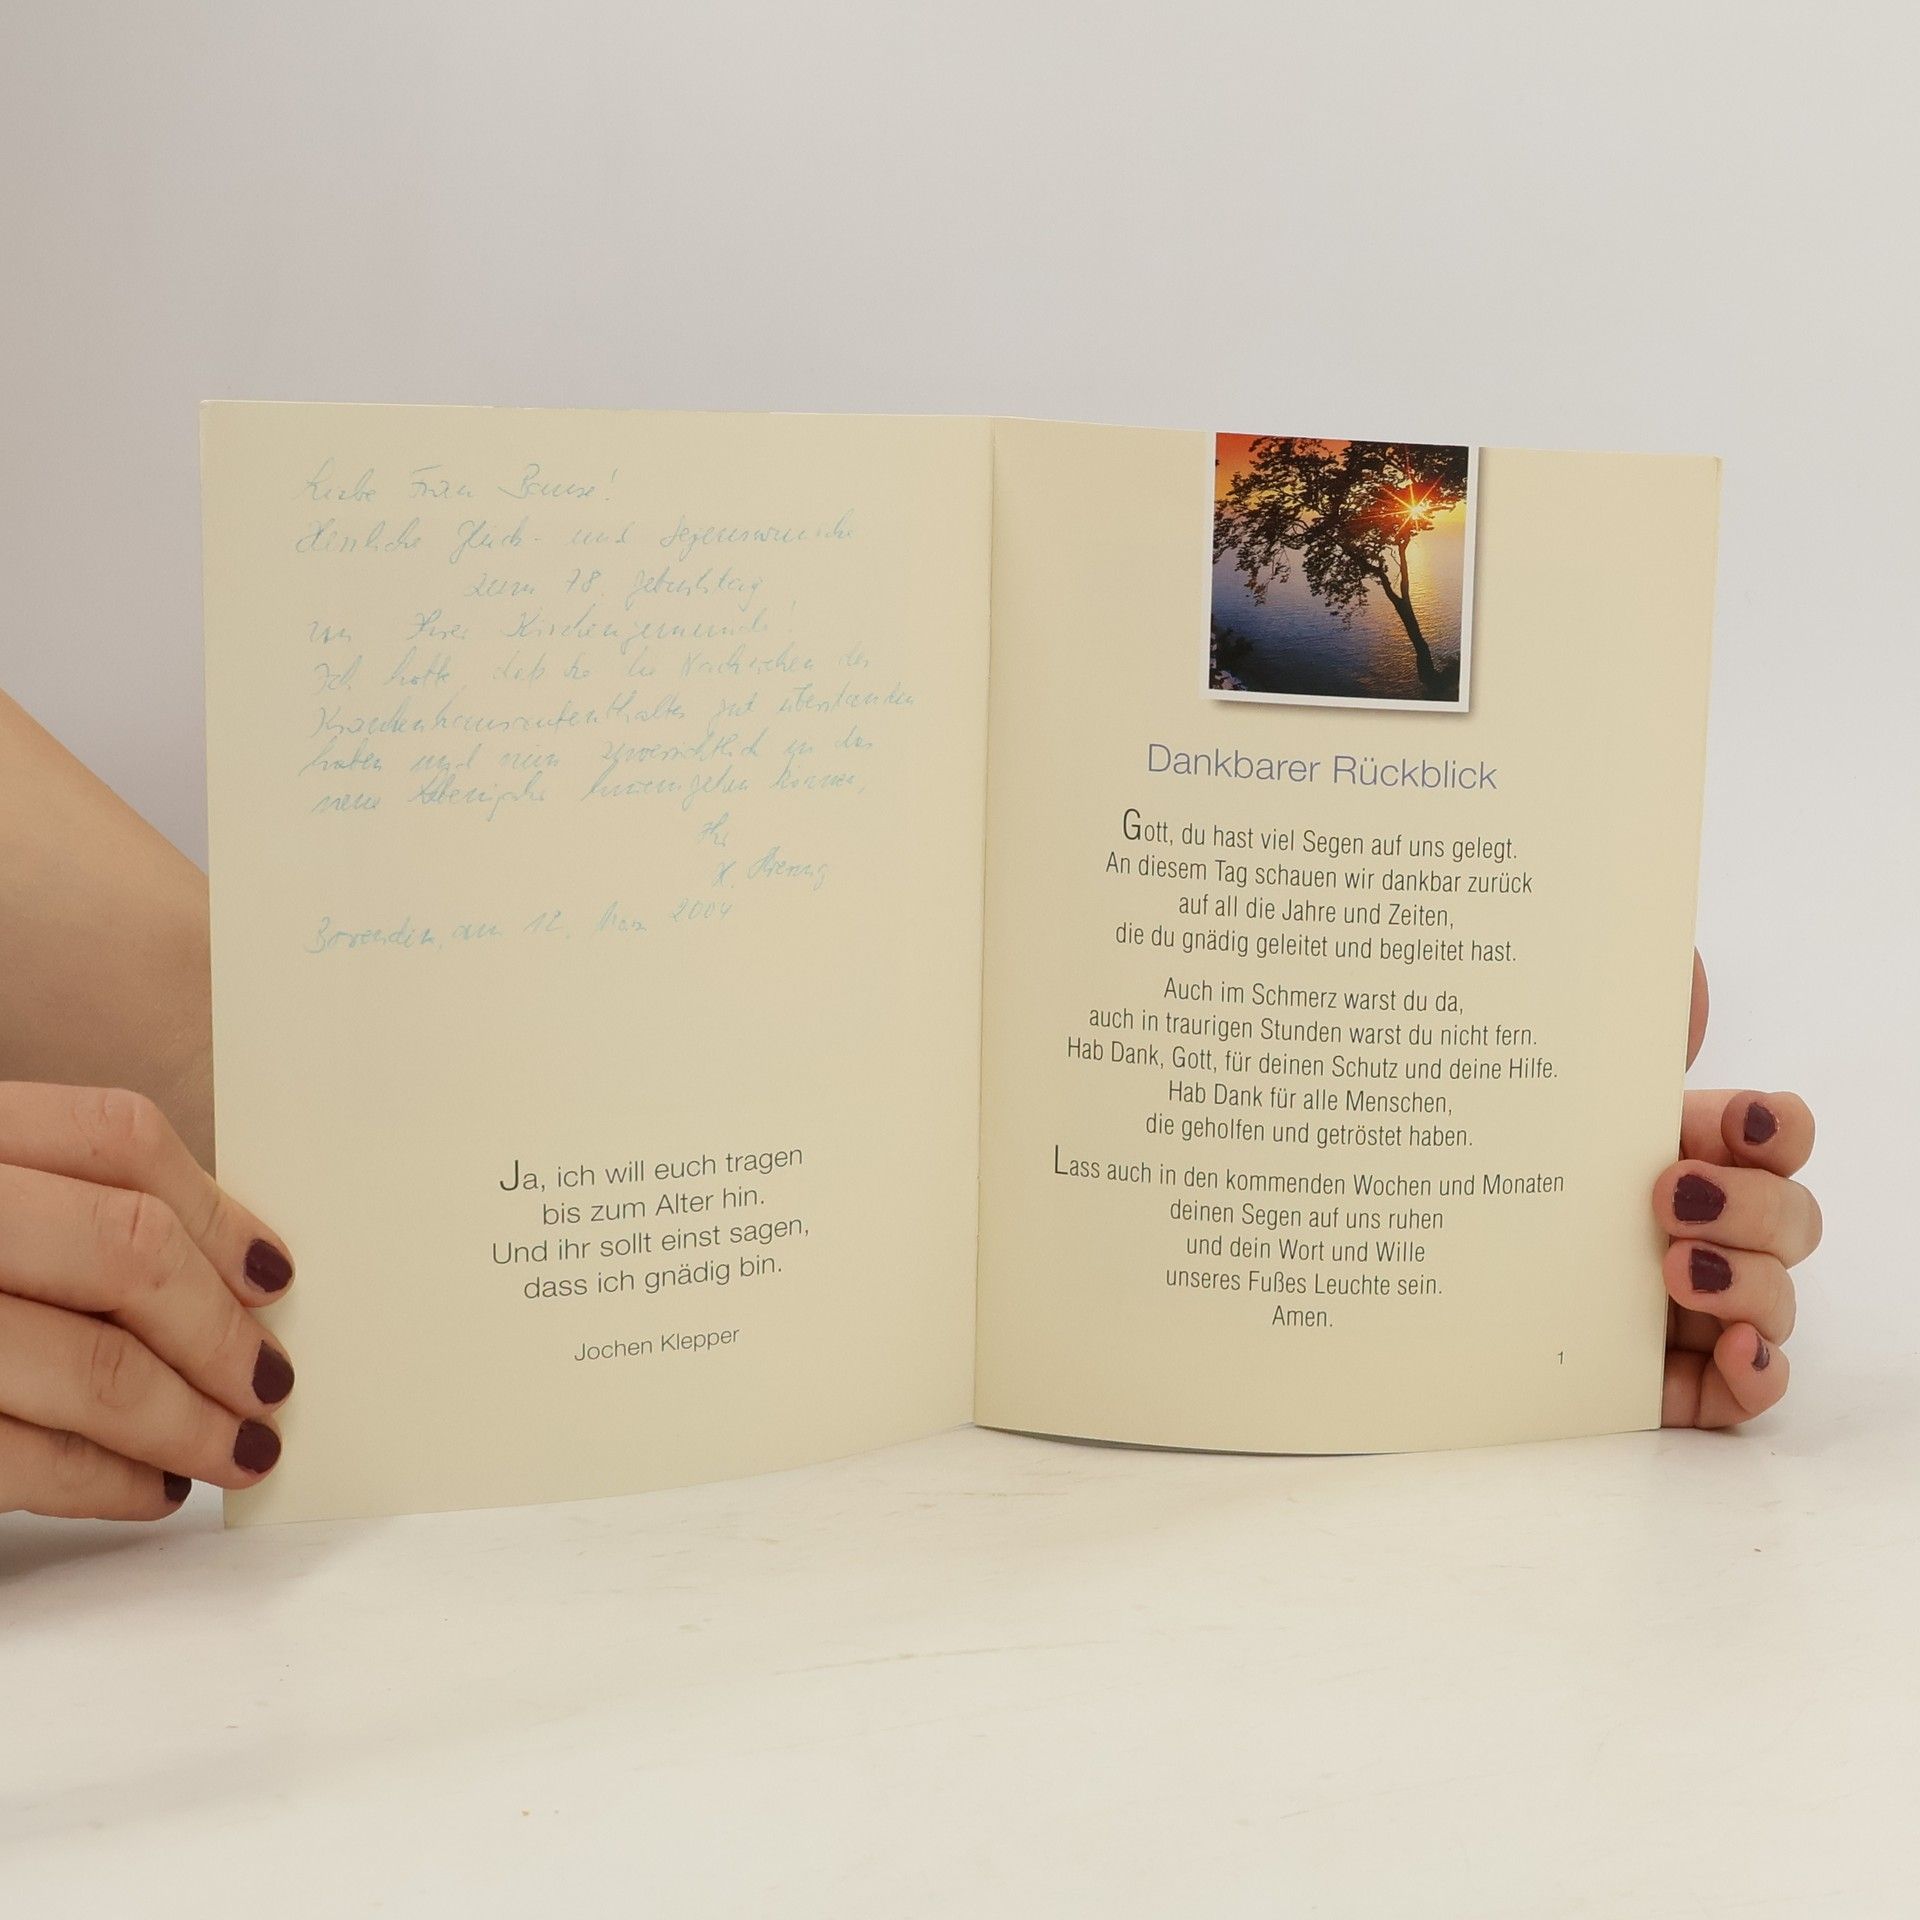 Liebe Frau
Herzliche Glück- und Segenswünsche
zum 78. Geburtstag
von Ihrer Kirchengemeinde!
Ich hoffe, daß Sie die des
Krankenhausaufenthaltes gut überstanden
haben und nun zuversichtlich in das
neue Lebensjahr hineingehen können,
Ihr
am 12. 2004
Ja, ich will euch tragen
bis zum Alter hin.
Und ihr sollt einst sagen,
dass ich gnädig bin.
Jochen Klepper
Dankbarer Rückblick
Gott, du hast viel Segen auf uns gelegt.
An diesem Tag schauen wir dankbar zurück
auf all die Jahre und Zeiten,
die du gnädig geleitet und begleitet hast.
Auch im Schmerz warst du da,
auch in traurigen Stunden warst du nicht fern.
Hab Dank, Gott, für deinen Schutz und deine Hilfe.
Hab Dank für alle Menschen,
die geholfen und getröstet haben.
Lass auch in den kommenden Wochen und Monaten
deinen Segen auf uns ruhen
und dein Wort und Wille
unseres Fußes Leuchte sein.
Amen.
1